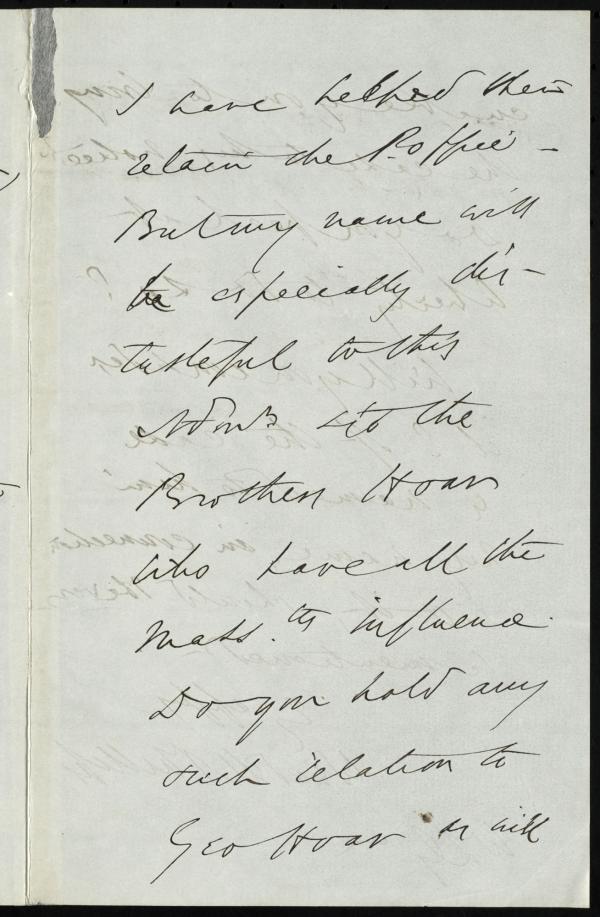 I have helped them
retain the P. office –
But my name will
be especially dis-
tasteful to this
Admn & to the
Brothers Hoar
who have all the
Mass. tts influence.
Do you hold any
such relation to
Geo Hoar or will